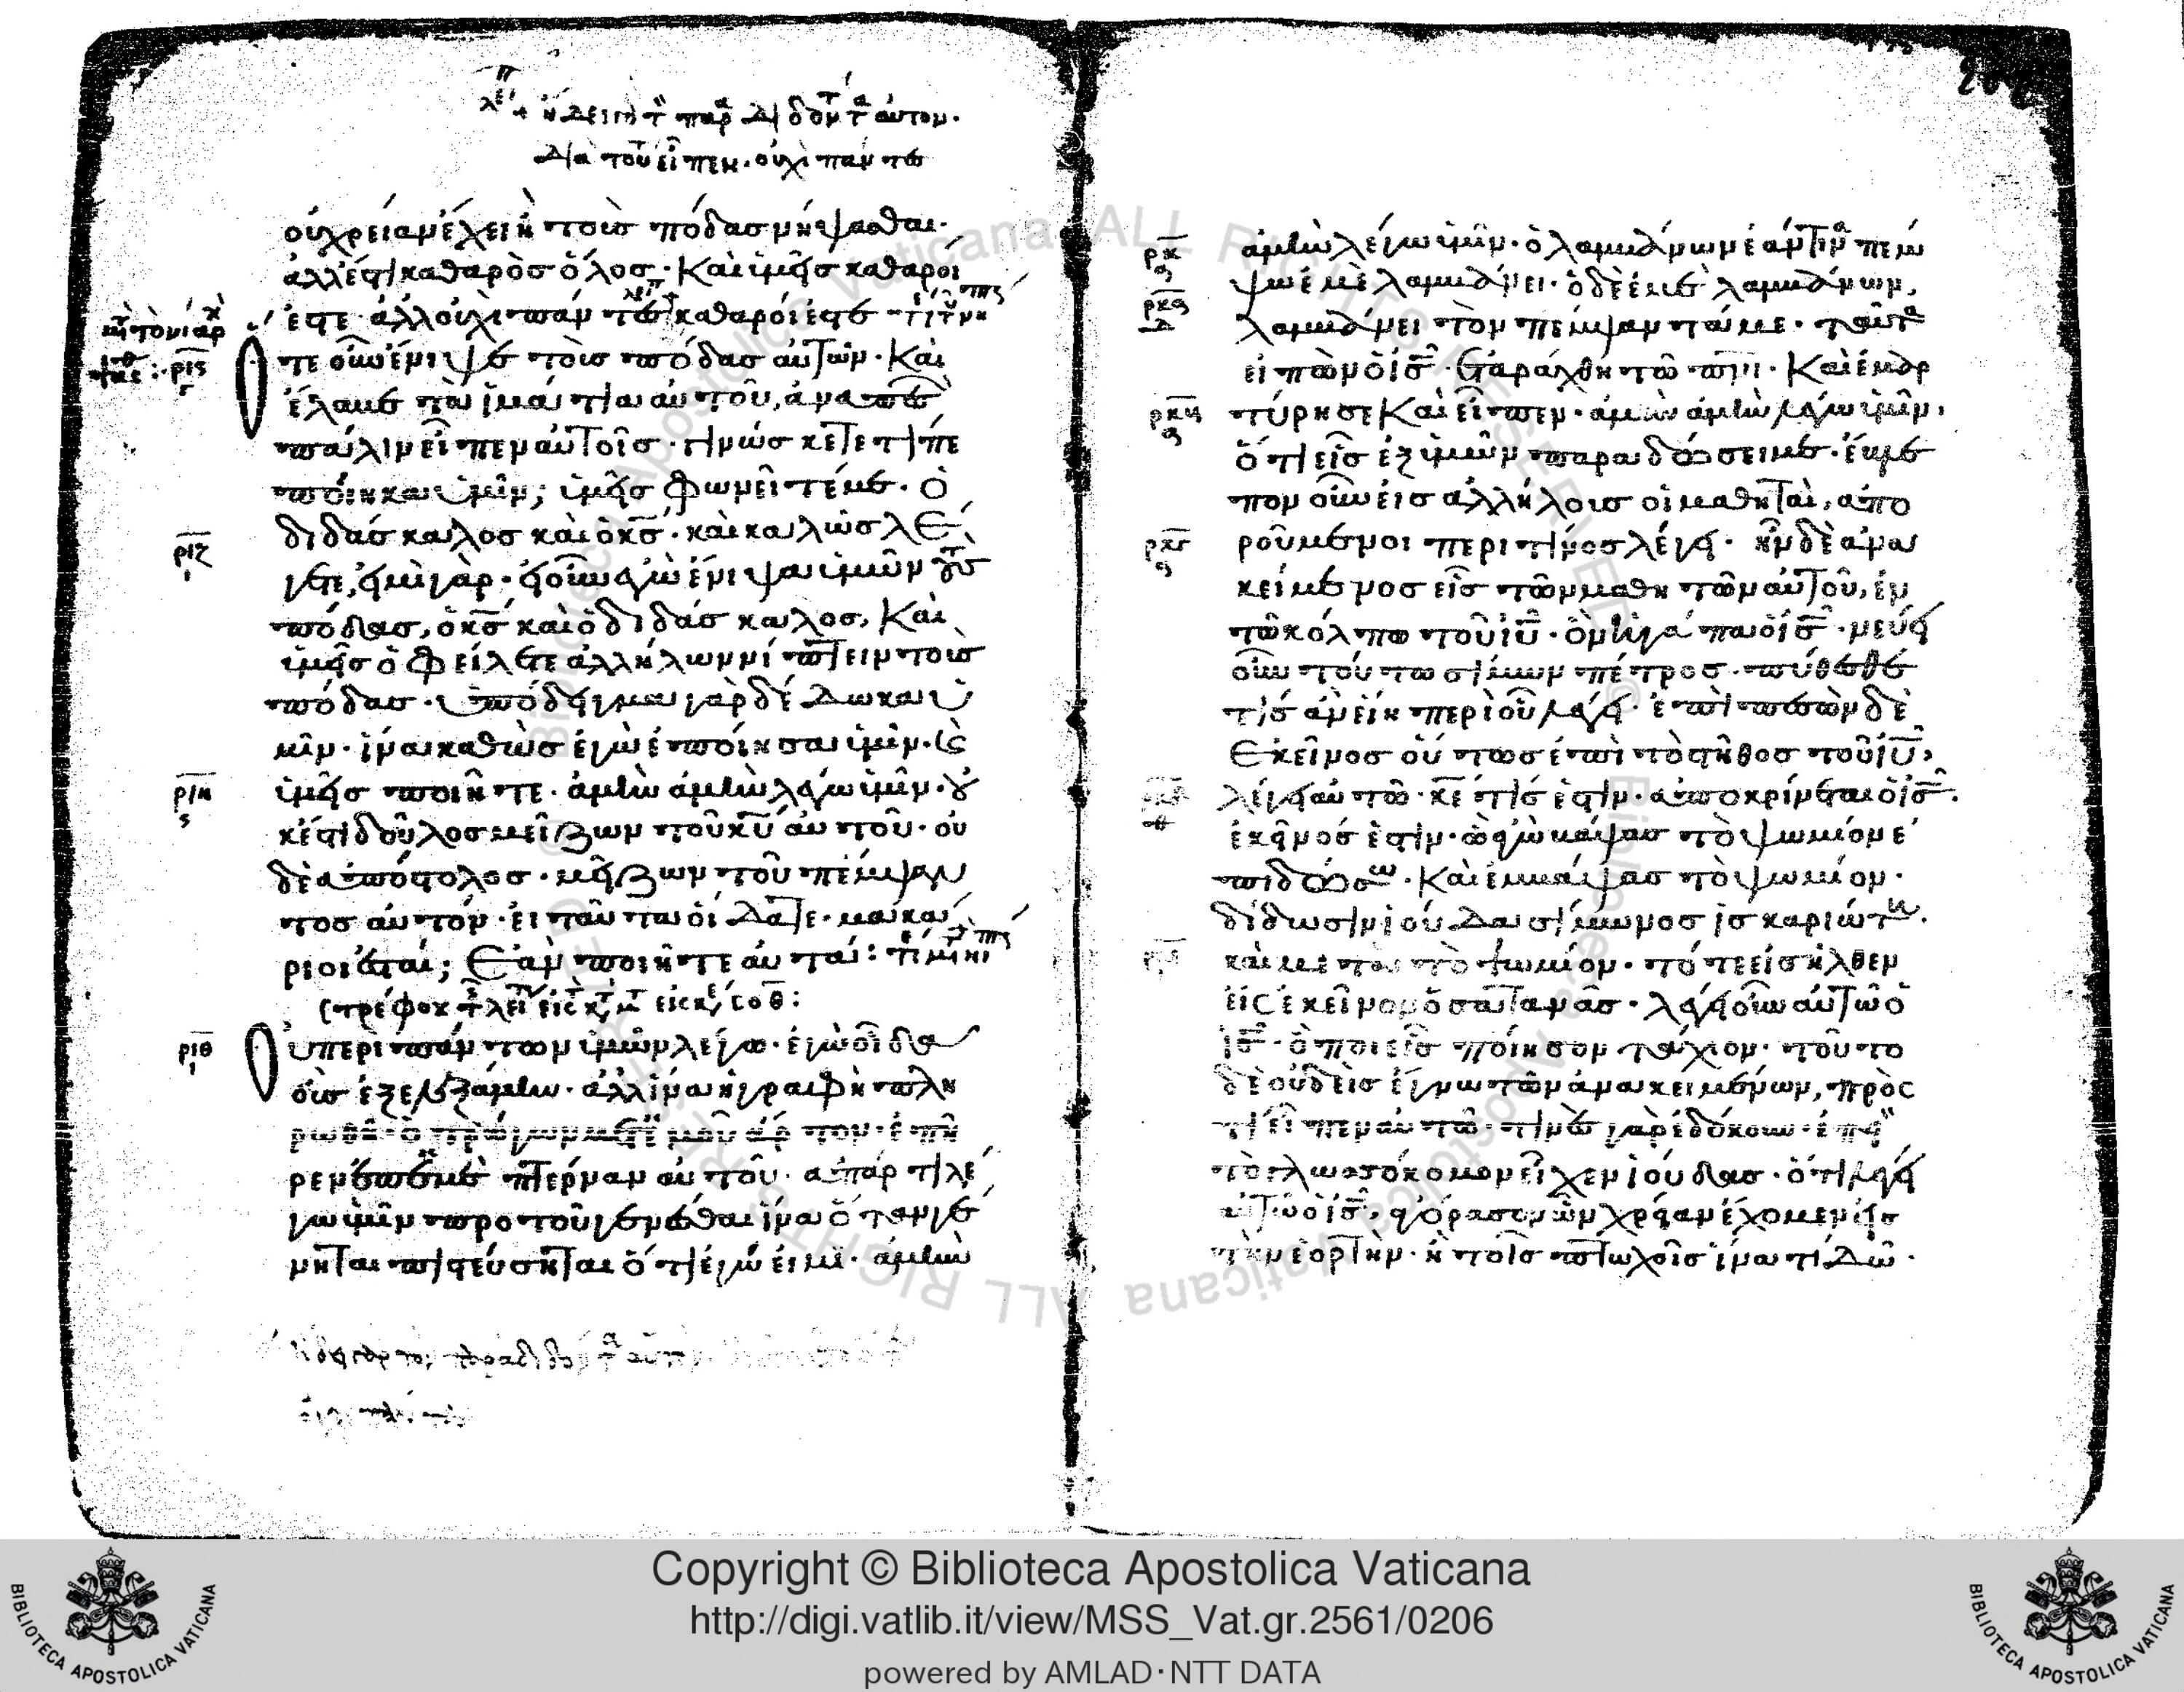 ᾔδει γὰρ τὸν παραδιδόντα αὐτόν.
διὰ τοῦτο εἶπεν· οὐχὶ πάντε
οὐ χρείαν ἔχει ἢ τοὺς πόδας νίψασθαι·
ἀλλ' ἔστι καθαρὸς ὅλος· Καὶ ὑμεῖς καθαροί
ἐστε· ἀλλ' οὐχὶ πάντες καθαροί ἐστε
τε οὖν ἔνιψε τοὺς πόδας αὐτῶν· Καὶ
ἔλαβε τὰ ἱμάτια αὐτοῦ, ἀναπεσὼν
πάλιν εἶπεν αὐτοῖς· γινώσκετε τί πε
ποίηκα ὑμῖν; ὑμεῖς φωνεῖτέ με· ὁ
ριζ διδάσκαλος καὶ ὁ κς· καὶ καλῶς λέ
γετε, εἰμὶ γάρ· εἰ οὖν ἐγὼ ἔνιψα ὑμῶν τοὺς
πόδας, ὁ κς καὶ ὁ διδάσκαλος, Καὶ
ὑμεῖς ὀφείλετε ἀλλήλων νίπτειν τοὺς
πόδας· ὑπόδειγμα γὰρ δέδωκα ὑ
μῖν· ἵνα καθὼς ἐγὼ ἐποίησα ὑμῖν· καὶ
ριη ὑμεῖς ποιῆτε· ἀμὴν ἀμὴν λέγω ὑμῖν· οὐ
κ ἔστι δοῦλος μείζων τοῦ κυ αὐτοῦ· οὐ
δὲ ἀπόστολος· μείζων τοῦ πέμψαν
τος αὐτόν· εἰ ταῦτα οἴδατε· μακά
ριοί ἐσται; Ἐὰν ποιῆτε αὐτά:
ριθ Οὐ περὶ πάντων ὑμῶν λέγω· ἐγὼ οἶδα
οὓς ἐξελεξάμην· ἀλλ' ἵνα ἡ γραφὴ πλη
ρωθῇ· ὁ τρώγων μετ' ἐμοῦ ἄρτον· ἐπῆ
ρεν ἐπ' ἐμὲ πτέρναν αὐτοῦ· ἀπάρτι λέ
γω ὑμῖν πρὸ τοῦ γενέσθαι ἵνα ὅταν γέ
νηται πιστεύσηται ὅτι ἐγώ εἰμι· ἀμὴν
ρκ ἀμὴν λέγω ὑμῖν· ὁ λαμβάνων ἐάν τινα πέμ
ψω ἐμὲ λαμβάνει· ὁ δὲ ἐμὲ λαμβάνων,
ρκα λαμβάνει τὸν πέμψαντά με· ταῦτα
εἰπὼν ὁ ις· Ἐταράχθη τῷ πνι· Καὶ ἐμαρ
ρκβ τύρησε Καὶ εἶπεν· ἀμὴν ἀμὴν λέγω ὑμῖν,
ὅτι εἷς ἐξ ὑμῶν παραδώσει με· ἔβλε
πον οὖν εἰς ἀλλήλους οἱ μαθηταί, ἀπο
ρκγ ρούμενοι περὶ τίνος λέγει· ἦν δὲ ἀνα
κείμενος εἷς τῶν μαθητῶν αὐτοῦ, ἐν
τῷ κόλπῳ τοῦ ιυ· ὃν ἠγάπα ὁ ις· νεύει
οὖν τούτῳ σίμων πέτρος· πυθέσθαι
τίς ἂν εἴη περὶ οὗ λέγει· ἐπιπεσὼν δὲ
Ἐκεῖνος οὕτως ἐπὶ τὸ στῆθος τοῦ ιυ,
λέγει αὐτῷ· κε τίς ἐστιν· ἀποκρίνεται ὁ ις·
ἐκεῖνός ἐστιν· ᾧ ἐγὼ βάψας τὸ ψωμίον ἐ
πιδώσω· Καὶ ἐμβάψας τὸ ψωμίον·
δίδωσιν ἰούδα σίμωνος ἰσκαριώτῃ.
καὶ μετὰ τὸ ψωμίον· τότε εἰσῆλθεν
εἰς ἐκεῖνον ὁ σατανᾶς· λέγει οὖν αὐτῷ ὁ
ις· ὃ ποιεῖς ποίησον τάχιον· τοῦτο
δὲ οὐδεὶς ἔγνω τῶν ἀνακειμένων, πρὸς
τί εἶπεν αὐτῷ· τινὲς γὰρ ἐδόκουν· ἐπεὶ
τὸ γλωσσόκομον εἶχεν ἰούδας· ὅτι λέγει
αὐτῷ ὁ ις, ἀγόρασον ὧν χρείαν ἔχομεν εἰς
τὴν ἑορτήν· ἢ τοῖς πτωχοῖς ἵνα τι δῷ·
Copyright © Biblioteca Apostolica Vaticana
http://digi.vatlib.it/view/MSS_Vat.gr.2561/0206
powered by AMLAD·NTT DATA
BIBLIOTECA APOSTOLICA VATICANA
BIBLIOTECA APOSTOLICA VATICANA